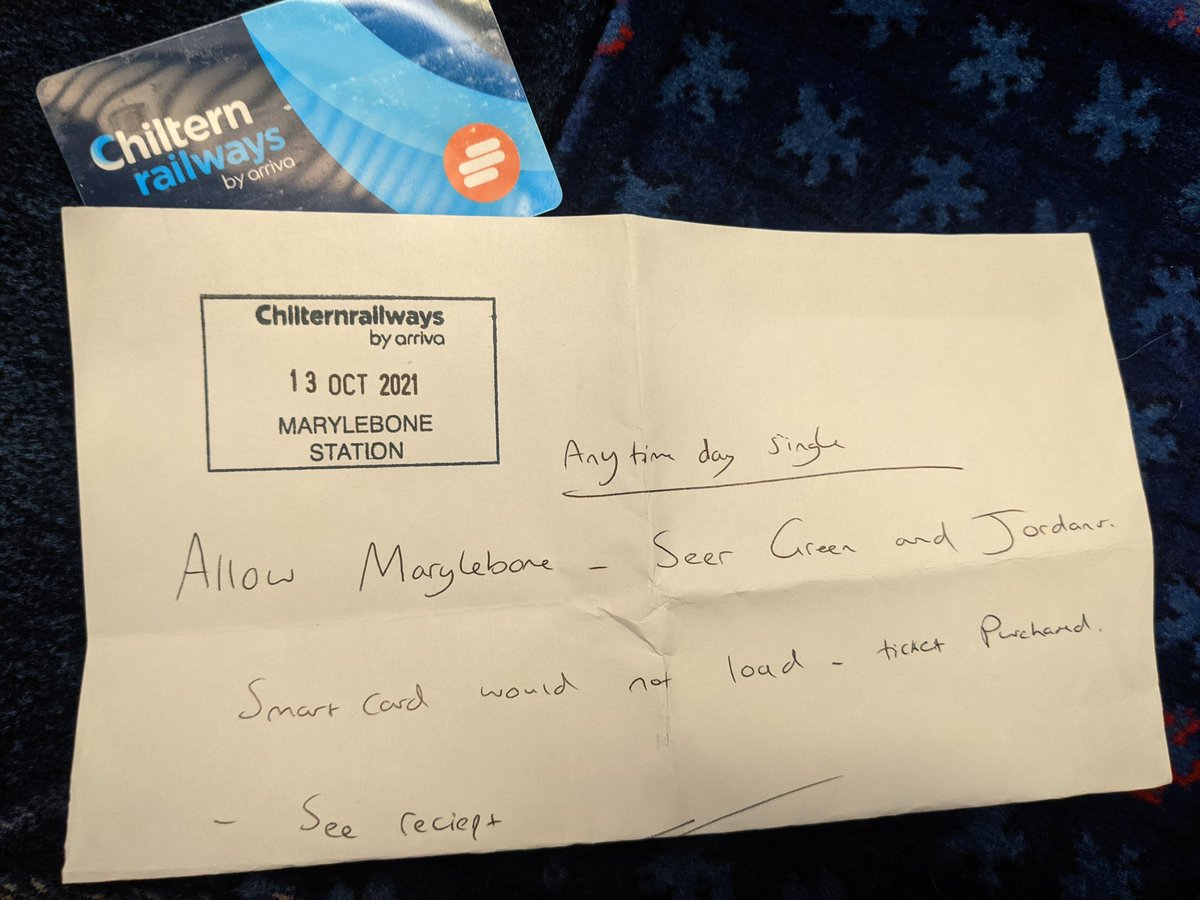 Chiltern
railways
by arriva
Chilternrailways
by arriva
13 OCT 2021
MARYLEBONE
STATION
Anytime day single
Allow Marylebone - Seer Green and Jordans.
Smart card would not load - ticket Purchased.
- See reciept